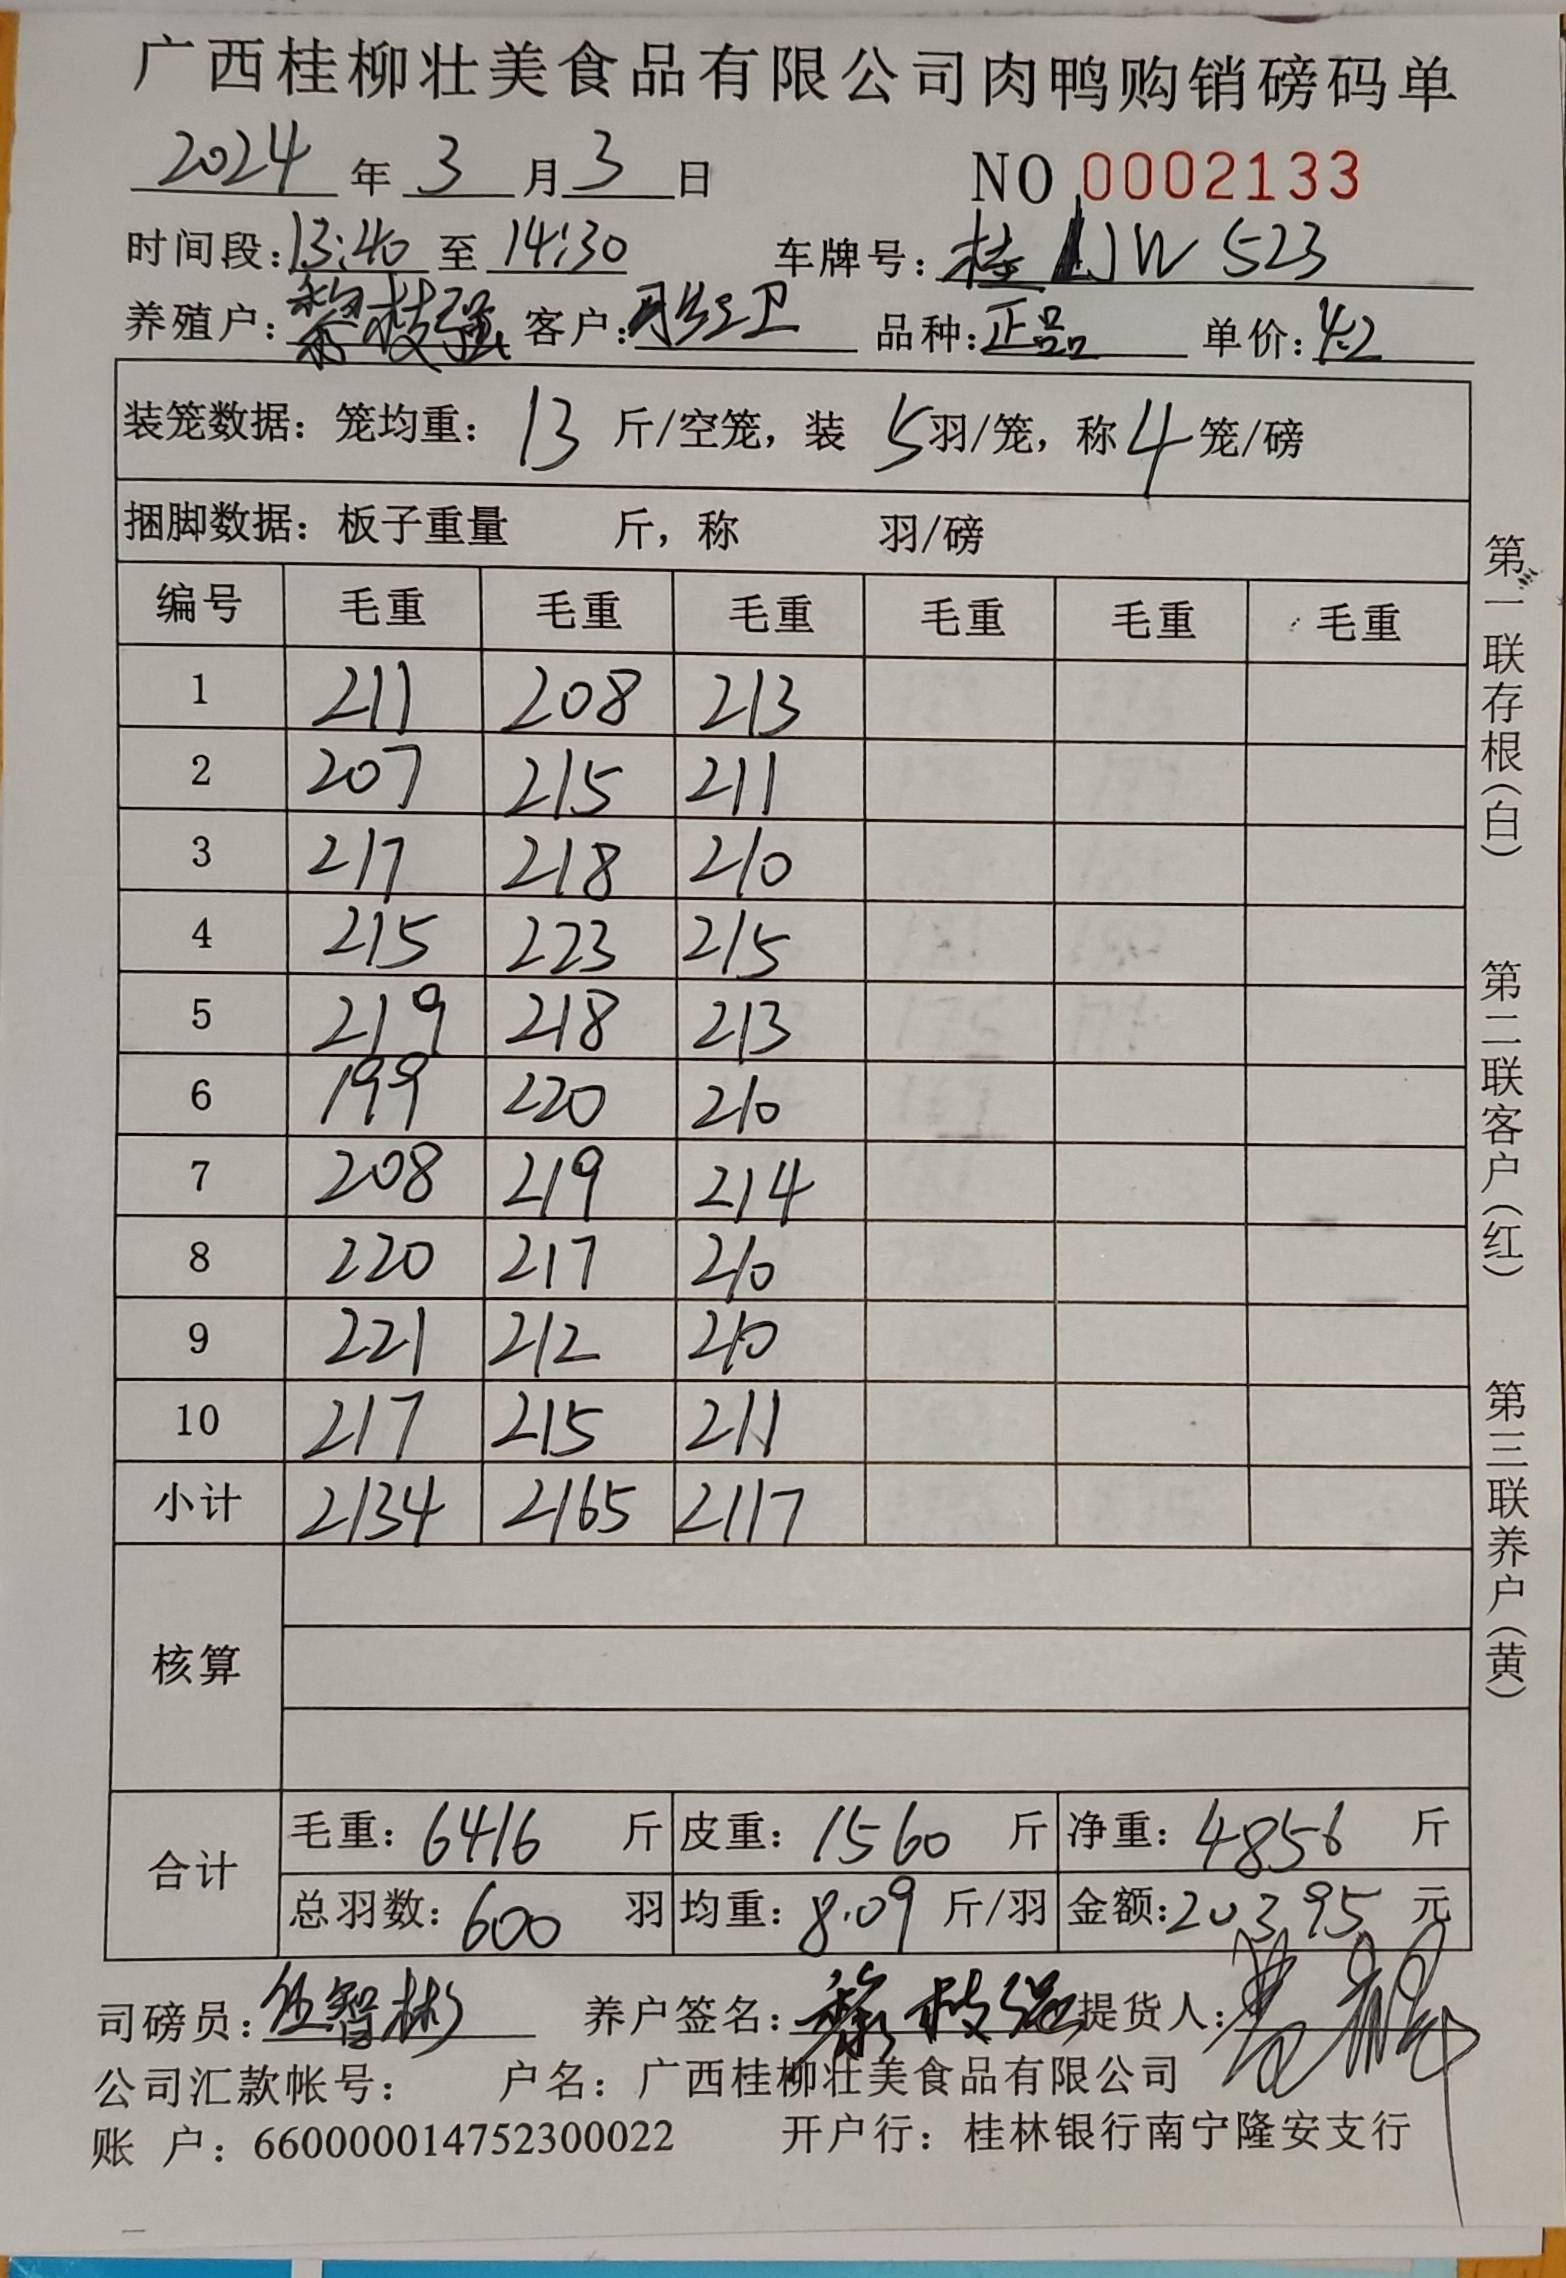 广西桂柳壮美食品有限公司肉鸭购销磅码单
2024 年 3 月 3 日 NO 0002133
时间段：13:40 至 14:30 车牌号：桂 JW 523
养殖户：黎枝强 客户：卫 品种：正品 单价：4.2
装笼数据：笼均重：13 斤/空笼，装 5 羽/笼，称 4 笼/磅
捆脚数据：板子重量 斤，称 羽/磅
编号 毛重 毛重 毛重 毛重 毛重 毛重
1 211 208 213
2 207 215 211
3 217 218 210
4 215 223 215
5 219 218 213
6 199 220 210
7 208 219 214
8 220 217 210
9 221 212 210
10 217 215 211
小计 2134 2165 2117
核算
合计
毛重：6416 斤 皮重：1560 斤 净重：4856 斤
总羽数：600 羽 均重：8.09 斤/羽 金额：20395 元
司磅员：智彬 养户签名：黎枝强 提货人：
公司汇款帐号： 户名：广西桂柳壮美食品有限公司
账 户：660000014752300022 开户行：桂林银行南宁隆安支行
第一联存根（白） 第二联客户（红） 第三联养户（黄）